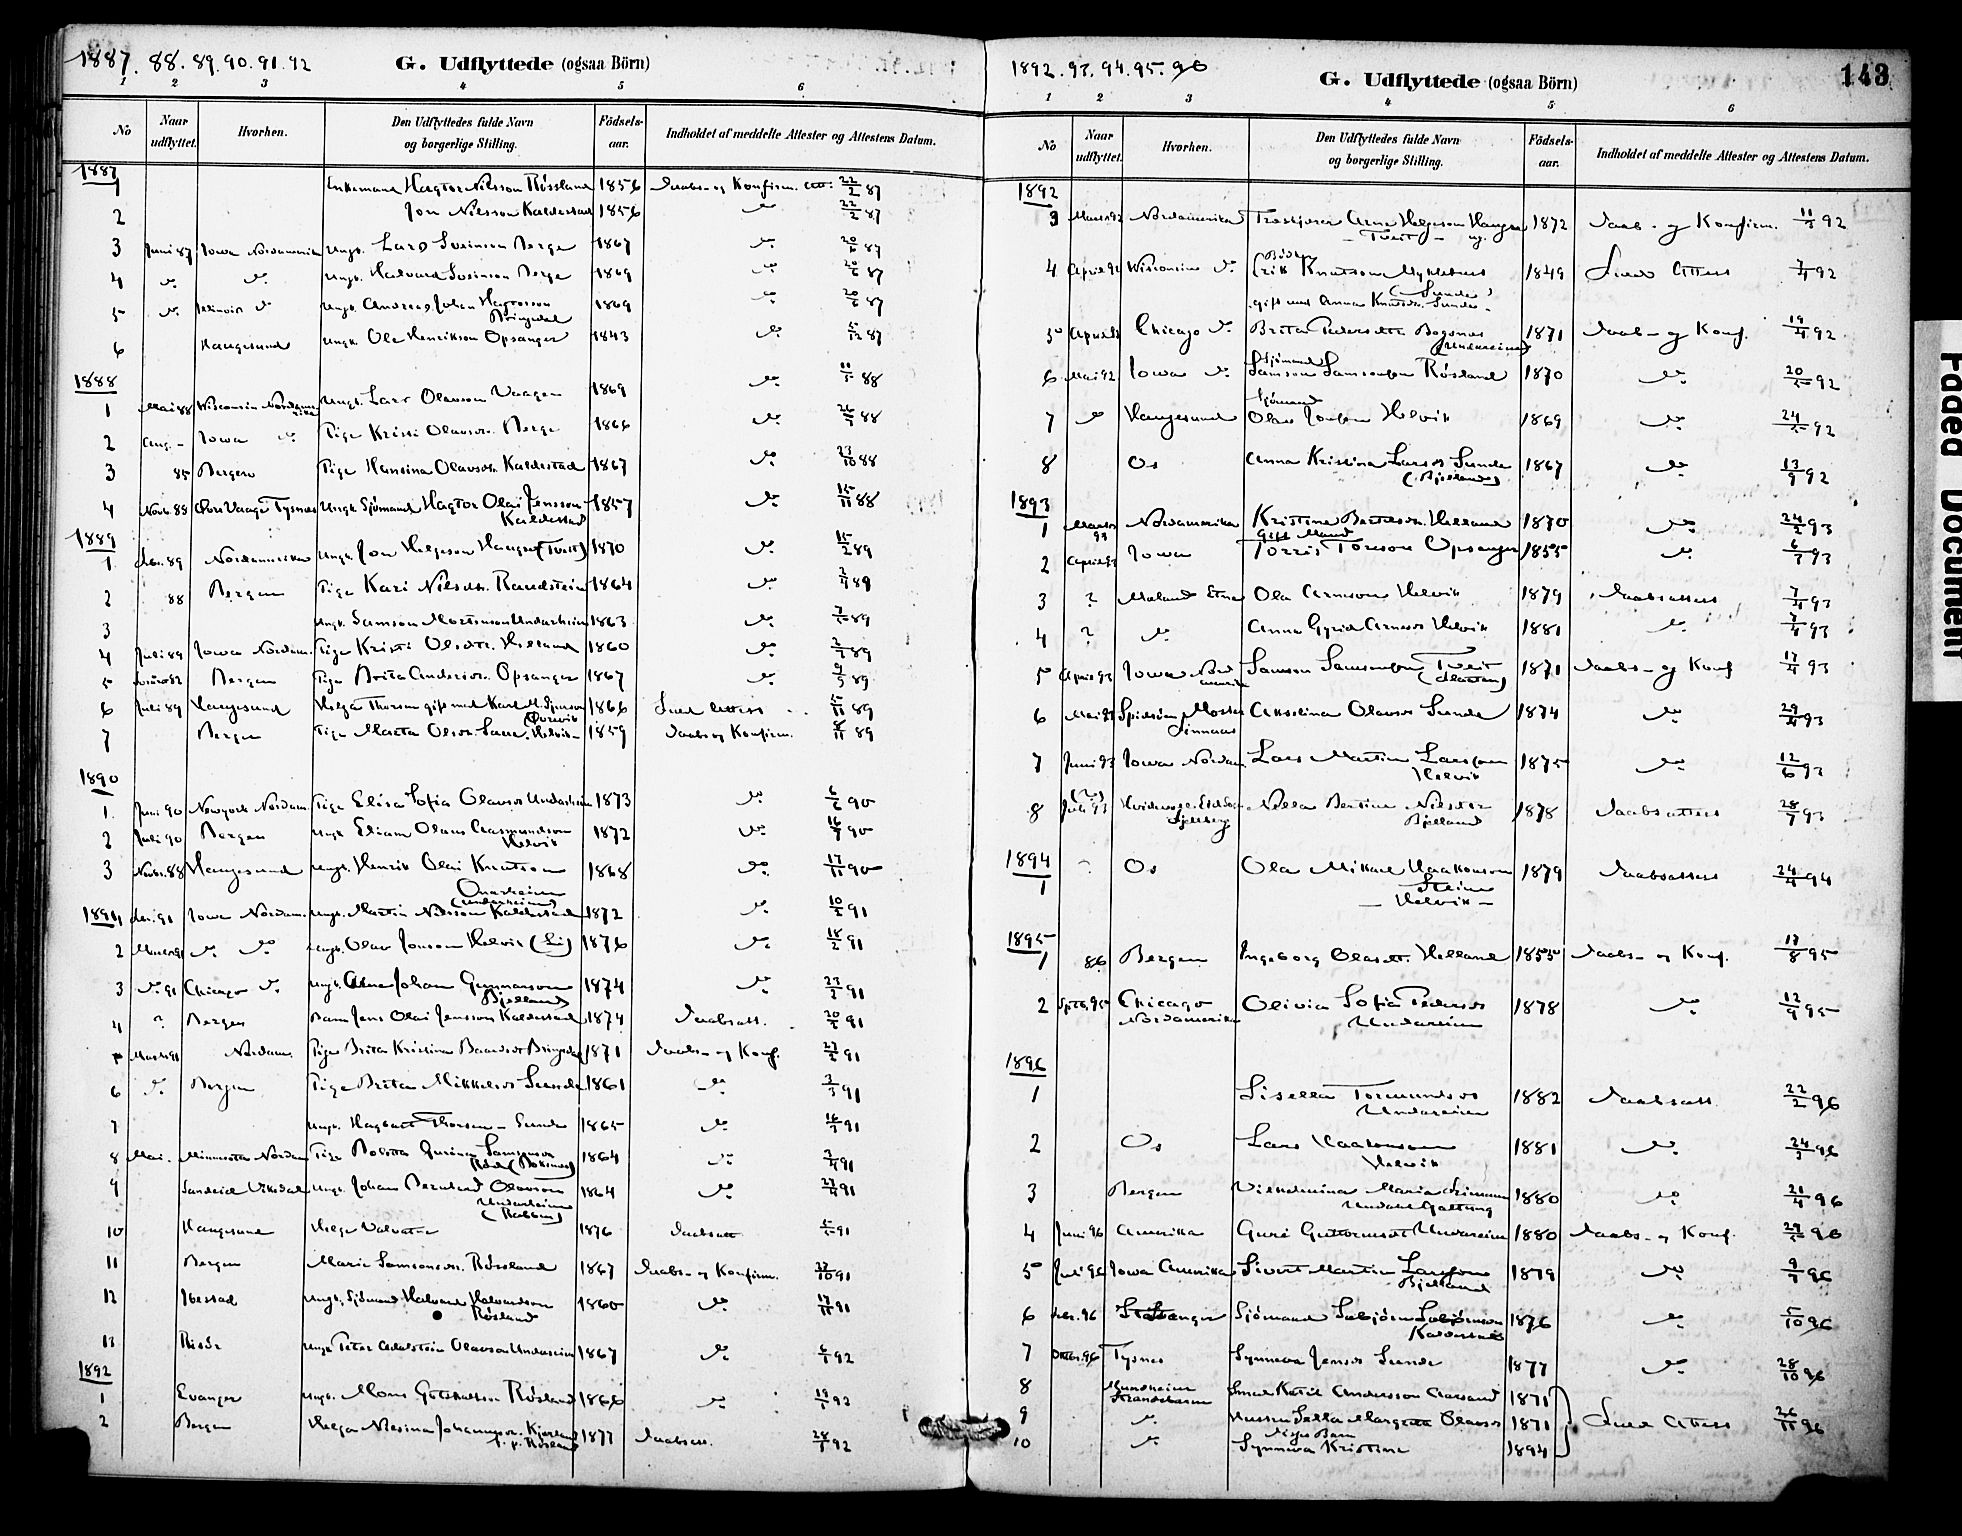 1887. 88. 89. 90. 91. 92
G. Udflyttede (ogsaa Börn)
1 2 3 4 5 6
No
Naar udflyttet.
Hvorhen.
Den Udflyttedes fulde Navn og borgerlige Stilling.
Födsels-aar.
Indholdet af meddelte Attester og Attestens Datum.
1887
1 Enkemand Hagtor Nilsson Røssland 1856 Daabs- og Konfirm. att: 22/2 87
2 Jon Nilsson Kaldestad 1856 " 22/2 87
3 Juni 87 Iowa Nordamerika Ungk. Lars Sveinson Berge 1867 " 20/6 87
4 " " Ungk. Halvard Sveinson Berge 1869 " 20/6 87
5 " Illinois " Ungk. Andreas Johan Hagtorson Bringedal 1869 " 20/6 87
6 Haugesund Ungk. Ole Henrikson Opsanger 1843 " 5/12 87
1888
1 Mai 88 Wisconsin Nordamerika Ungk. Lars Olavson Vaagen 1869 " 88
2 Aug. - Iowa " Pige Kristi Olavsdr. Berge 1866 " 88
3 85 Bergen Pige Hansina Olavsdr. Kaldestad 1867 " 23/10 88
4 Novb. 88 Tysnes Ungk. Sjömand Hagtor Olai Jensson Kaldestad 1857 " 15/11 88
1889
1 Febr. 89 Nordamerika Ungk. Jon Helgeson Haugen (Tveit) 1870 " 15/2 89
2 88 Bergen Pige Kari Nilsdr. Randstein 1864 " 89
3 Ungk. Samson Mortenson Undarheim 1863 " 89
4 Juli 89 Iowa Nordam. Pige Kristi Olsdtr. Helland 1860 " 89
5 Bergen Pige Brita Andersdr. Opsanger 1867 " 89
6 Juli 89 Haugesund Helga Thorsen gift med Karl M. 1866 Lued Attest 15/11 89
7 Bergen Pige Marta Olsdr. Helvik 1859 Daabs og Konfirm. 11 89
1890
1 Juni 90 Newyork Nordam. Pige Elisa Sofia Olavsdr Undarheim 1873 " 6/6 90
2 Juli 90 Bergen Ungk Eliam Olaus Aasmundson Helvik 1872 " 16/7 90
3 Novbr. 88 Haugesund Ungk. Henrik Olai Knutson Onarheim (Undarheim) 1868 " 17/11 90
1891 1 Febr. 91 Iowa Nordam. Ungk. Martin Nilsson Kaldestad 1872 " 10/2 91
2 Marts 91 " " Ungk. Olav Jonson Helvik (Li) 1876 " 18/2 91
3 " 91 Chicago " Ungk. Arne Johan Gunnarson Bjelland 1874 " 23/2 91
4 ? Bergen Barn Jens Olai Jensson Kaldestad 1874 Daabsatt. 20/2 91
5 Marts 91 Nordam. Pige Brita Kristina Baardsdr Bringedal 1871 Daabs- og Konf. 27/2 91
6 " Bergen Pige Brita Mikkelsdr Sunde 1861 " 3/3 91
7 Ungk. Hagbart Thorsen - Sunde 1865 " 16/3 91
8 Mai. Minnesota Nordam Pige Bolette Gurina Samsonsdr 1864 " 2/4 91
9 Sandeid Vikedal Ungk. Johan Bernhard Olavson Undarheim (Rabben) 1864 " 23/4 91
10 Haugesund Helge Valvatne 1876 Daabsatt 91
11 Bergen Marie Samsonsdr. Røssland 1867 Daabs- og Konfirm. 10 91
12 Ibestad Ungk. Sjömand Halvard Halvardson Røsland 1860 " 17/11 91
13 Risör Ungk Peter Adalstein Olavson Undarheim 1867 " 6/1 92
1892
1 Evanger Ungk. Mons Gotskalkson Røsland 1866 " 19/1 92
2 Bergen Helga Nilsina Johannesdr. Kjerland p. t. Røsland 1877 Daabsatt. 28/1 92
1892. 93. 94. 95. 96
G. Udflyttede (ogsaa Börn)
143
1 2 3 4 5 6
No
Naar udflyttet.
Hvorhen.
Den Udflyttedes fulde Navn og borgerlige Stilling.
Födsels-aar.
Indholdet af meddelte Attester og Attestens Datum.
1892
3 Marts 92 Nordamerika Træskjærer Arne Helgeson Haugen - Tveit - ug. 1872 Daab- og Konfirm. 11/3 92
4 April 92 Wisconsin " Bödker Erik Knutson Myklebust (Sunde) gift med Anna Knutsdr. Sunde - 1849 Lued Attest 7/4 92
5 April 92 Chicago " Brita Pedersdtr Bogsnes (Undareim) 1871 Daab- og Konf. 19/4 92
6 Mai 92 Iowa " Sjömand Samson Samsonson Røsland 1870 " 20/5 92
7 " Haugesund Sjömand Olav Jonson Helvik 1869 " 24/5 92
8 Os Anna Kristina Larsdr Sunde (Bjelland) 1867 " 13/9 92
1893
1 Marts 93 Nordamerika Kristina Bertilsdr. Helland 1870 " 24/2 93
2 April 93 Iowa Gift Mand Torris Toreson Opsanger 1855 " 6/3 93
3 ? Maland Etne Ola Arneson Helvik 1879 Daabsattest 7/4 93
4 ? " Anna Gyrid Arnesdr Helvik 1881 " 7/4 93
5 April 93 Iowa Nordamerika Samson Samsonson Tveit 1871 Daabs- og Konf 17/4 93
6 Mai 93 Akselina Olavsdr Sunde 1874 " 29/4 93
7 Juni 93 Iowa Nordam. Lars Martin Larsson Helvik 1875 " 12/6 93
8 Juli 93 Fjelberg Nilla Bertine Nilsdtr Bjelland 1878 Daabsattest 28/7 93
1894
1 ? Os Ola Mikael Haakonson Steine - Helvik - 1879 Daabsattest 24/4 94
1895
1 86 Bergen Ingeborg Olasdt. Helland 1855 Daabs- og Konf. 17/8 95
2 Sptbr. 95 Chicago Nordamerika Olivia Sofia Pedersdr Undareim 1878 " 12/9 95
1896
1 Sisella Tormundsdr Undareim 1882 Daabsatt 22/2 96
2 Os Lars Haakonson Helvik 1881 " 24/3 96
3 Bergen Vilhelmina Maria Undahl Galtung 1880 " 21/4 96
4 Juni 96 Amerika Guri Guttormsdt Undareim 1880 Daabs- og Konf. 96
5 Juli 96 Iowa Amerika Sivert Martin Larsson Bjelland 1879 " 9/7 96
6 Febr. 96 Stavanger Sjömand Sæbjørn Sæbjørnson Kaldestad 1876 " 5/10 96
7 Oktbr. 96 Tysnes Synneva Jensdr Sunde 1877 " 28/10 96
8 Mundheim Strandebarm Smed Ketil Andersson Aarsand 1871
9 " Hustru Sella Margreta Olavsdr 1871 Lued Attest 26/11 96
10 " Disses Barn Synneva Kristine 1894
Faded Document